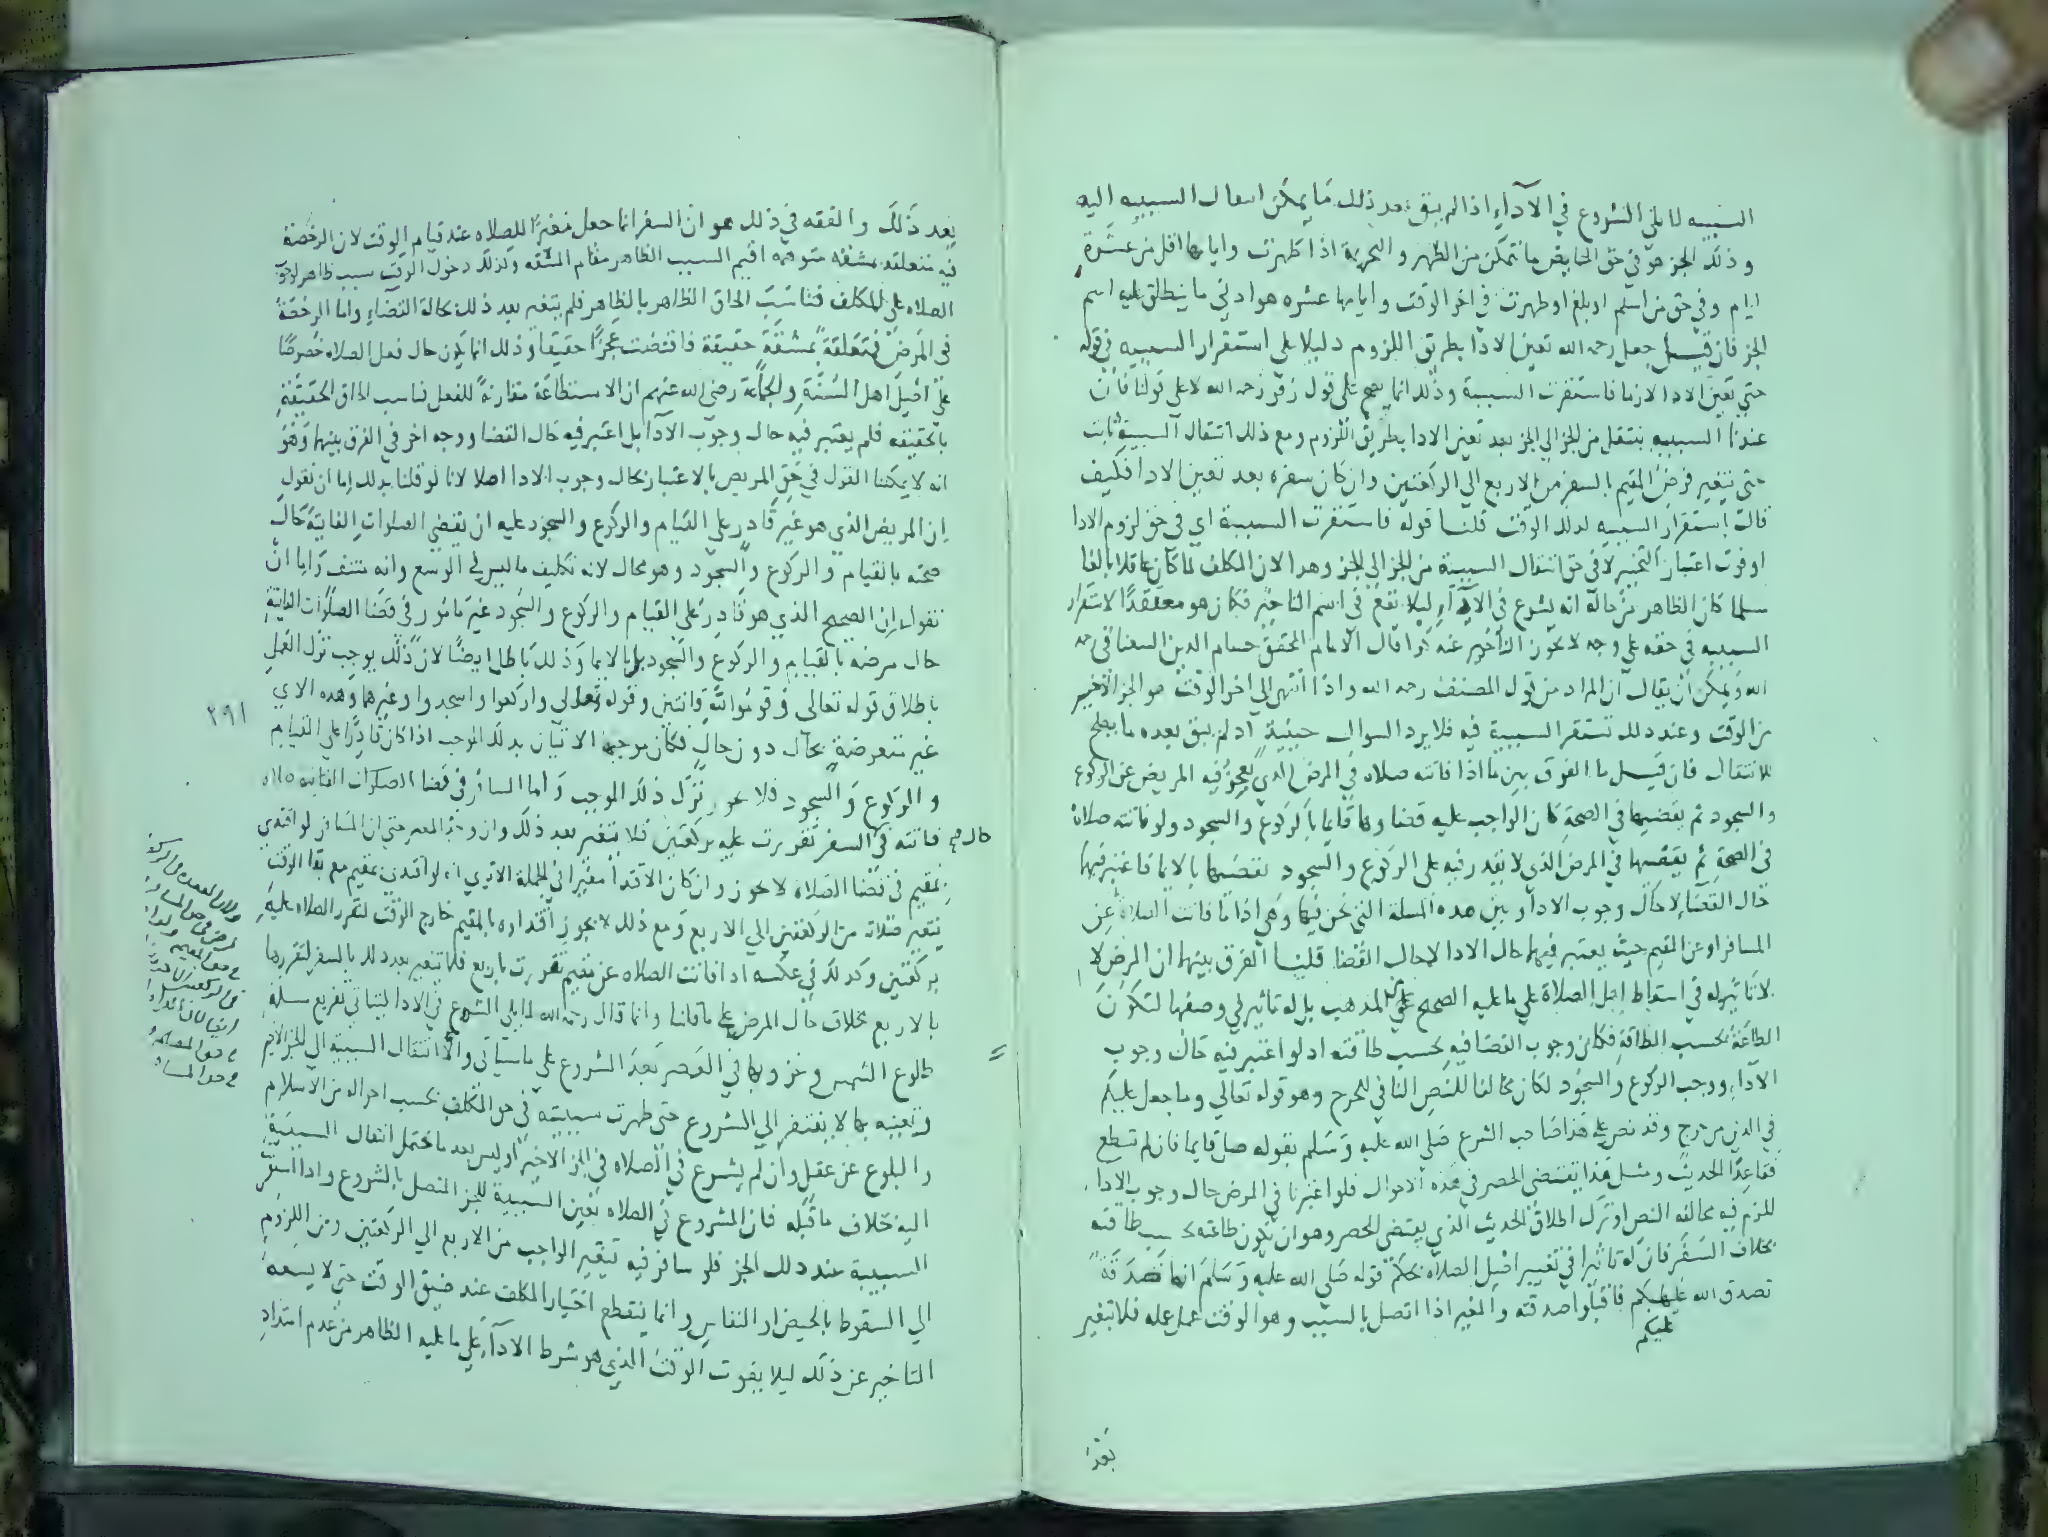 السببيه لما يلي الشروع في الآداءِ اذا لم يبق بعد ذلك مَا يمكن انتقال السببيه اليه
وذلك الجز هو في حق الحايض ما تتمكن من الطهر والتحريمة اذا طهرت وايامها اقل من عشرة
ايام وفي حق من اسلم او بلغ او طهرت في اخر الوقت وايامها عشره هو ادني ما ينطلق عليه اسم
الجز فان قيل جعل رحمه الله تعين الادا بطريق اللزوم دليلا علي استقرار السببيه في قوله
حتي تعين الادا لازما فاستقرت السببية وذلك انما يصح على قول زفر رحمه الله لا على قولنا فان
عندنا السببيه ينتقل من الجز الي الجز بعد تعين الادا بطريق اللزوم ومع ذلك انتقال السببية ثابت
حتى يتغير فرض المقيم بالسفر من الاربع الي الركعتين وان كان سفره بعد تعين الادا فكيف
قالت باستقرار السببيه لذلك الوقت قلنا قوله فاستقرت السببية اي في حق لزوم الادا
او فوت اعتبار التخيير لا في حق انتقال السببية من الجز الي الجز وهذا لان المكلف لما كان عاقلا بالغا
مسلما كان الظاهر من حاله انه يشرع في الآداءِ ليلا يقع في اسم التاخير فكان هو معتقدًا لاستقرار
السببيه في حقه علي وجه لا يجوز التأخير عنه كذا قال الامام المحقق حسام الدين السغناقي رحمه
الله ويمكن أن يقال ان المراد من قول المصنف رحمه الله واذا انتهى الي اخر الوقت هو الجز الاخير
من الوقت وعند ذلك تستقر السببية فيه فلا يرد السوال حينيذ اذ لم يبق بعده ما يصلح
للانتقال فان قيل ما الفرق بين ما اذا فاتته صلاة في المرض الذي يعجز فيه المريض عن الركوع
والسجود ثم يقضيها في الصحة كان الواجب عليه قضاوها قايما بالركوع والسجود ولو فاتته صلاة
في الصحة ثم يقضيها في المرض الذي لا يقدر فيه على الركوع والسجود يقضيها بالايما فاعتبر فيها
حال القضاءِ لا حال وجوب الادا وبين هذه المسلة التي نحن فيها وهي اذا ما فاتت الصلاة عن
المسافر او عن المقيم حيث يعتبر فيهما حال الادا لا حال القضا قلنا الفرق بينهما ان المرض لا
لا تاثير له في اسقاط اصل الصلاة علي ما عليه الصحيح من المذهب بل له تاثير في وصفها لتكون
الطاعة بحسب الطاقة فكان وجوب القضا فيه بحسب طاقته اذ لو اعتبر فيه حال وجوب
الآداءِ ووجب الركوع والسجود لكان مخالفا للنص النافي للحرج وهو قوله تعالي وما جعل عليكم
في الدين من حرج وقد نص على هذا صاحب الشرع صَلي الله عليه وَسَلم بقوله صل قايما فان لم تستطع
فقاعدًا الحديث ومثل هذا يقتضي الحصر في هذه الاحوال فلو اعتبرنا في المرض حال وجوب الآدا
للزم فيه مخالفه النص او ترك اطلاق الحديث الذي يقتضي الحصر وهو ان تكون طاعته بحسب طاقته
بخلاف السَفَر فان له تاثيرا في تغيير اصل الصلاة بحكم قوله صَلي الله عليه وَسَلمَ انها صَدَقَة
تصدق الله عليكم فاقبلوا صدقته والمغير اذا اتصل بالسبب وهو الوقت عمل عمله فلا تتغير
عليكم
بَعْدَ
بعد ذَلكَ والفقه في ذلك هو ان السفر انما جعل مغيرًا للصلاه عند قيام الوقت لان الرخصة
فيه متعلقه بمشقه متوهمه اقيم السبب الظاهر مقام المشقه وكذلك دخول الوقت سبب ظاهر لوجوب
الصلاه على المكلف فناسَبَ الحاق الظاهر بالظاهر فلم يتغير بعد ذلك بحالة القضاءِ واما الرخصَةُ
في المَرضْ فمتعَلقَةٌ بمشقَةٍ حقيقة فاقتضت عَجزًا حقيقيا وذلك انما يكون حال فعل الصلاه خُصوصًا
عَليّ اصْلِ اهل السُنَةِ والجماعة رضي الله عنهم ان الاستطاعَة مقارنةً للفعل فناسب الحاق الحقيقَةِ
بالحقيقه فلم يعتبر فيه حال وجوب الآدا بل اعتبر فيه حَال القضا ووجه اخر في الفرق بينهما وَهُوَ
انه لا يمكننا القول في حَقِ المريض بالاعتبار بحال وجوب الادا اصلا لانا لو قلنا بذلك اما ان نقول
ان المريض الذي هو غير قَادِر علي القيام والركوع والسجود عليه ان يقضي الصلوات الفايتَة حَالَ
صحته بالقيام والركوع والسجود وهو محال لانه تكليف ما ليس في الوسع وانه منتف وَاما ان
نقول بان الصحيح الذي هو قَادِرٌ علي القيام والركوع والسُجود غير مَامور في قضَا الصلَوات الفايتةِ
حال مرضه بالقيام والركوع والسجود بل بالايما وَذلك باطل ايضًا لان ذلك يوجب ترك العَمل
باطلاق قوله تعالى وقُومُوا لله قانتين وقوله تعالى واركعوا واسجدوا وغيرهما وهذه الاي
غير متعرضة بحال دون حال فكان موجبها الاتيان بذلك الموجب اذا كان قَادِرًا علي القيام
والركوع والسجود فلا يجوز ترك ذلك الموجب وَاما المسافر في قضا الصلوات الفايته صلاه
فاتته في السفر تقررت عليه بركعتين فلا يتغير بعد ذلك وان وجد المغير حتي ان المسَافر لو اقتدي
بمقيم في قَضَا الصَلاه لا يجوز وان كان الاقتدا مغيرا في الجملة الا تري انه لو اقتدي بمقيم مع بقا الوقت
يتغير صَلاته من الركعتين الي الاربع وَمع ذلك لا يجوز اقتداوه بالمقيم خارج الوقت لتقرر الصلاه عليه
بركعتين وكذلك في عكسه اذا فاتت الصلاه عن مقيم تقررت باربع فلا تتغير بعد ذلك بالسفر لتقررها
بالاربع بخلاف حال المرض على ما قلنا وانما قال رحمه الله لما يلي الشروع في الادا ليتاتي تفريع مسلة
طلوع الشمس وغروبها في العَصر بَعدَ الشروع علي ما سياتي والا انتقال السببيه الي الجز الاخير
وتعينه بما لا يفتقر الي الشروع حتى ظهرت سببيته في حق المكلف بحسب احواله من الاسلام
والبلوغ عن عقل وان لم يشرع في الصلاه في الجز الاخير اذ ليس بعده ما يحتمل انتقال السببية
اليه بخلاف ما قَبله فان الشروع في الصلاه تعين السببية للجز المتصل بالشروع واذا استقرت
السببية عند ذلك الجز فلو سافر فيه يتغير الواجب من الاربع الي الركعتين ومن اللزوم
الي السقوط بالحيض او النفاس وانما ينقطع اختيار المكلف عند ضيق الوقت حتي لا يسعه
التاخير عن ذَلكَ ليلا يفوت الوَقتُ الذي هو شرط الآداءِ عَلي ما عليه الظاهر من عدم امتدادِ
٢٩١
حال صح